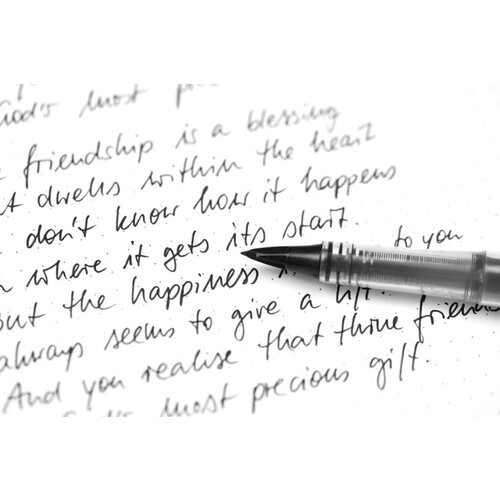 God's most
friendship is a blessing
t dwells within the heart
don't know how it happens
where it gets its start.
but the happiness to you
always seems to give a lift.
And you realise that thine friend
God's most precious gift.